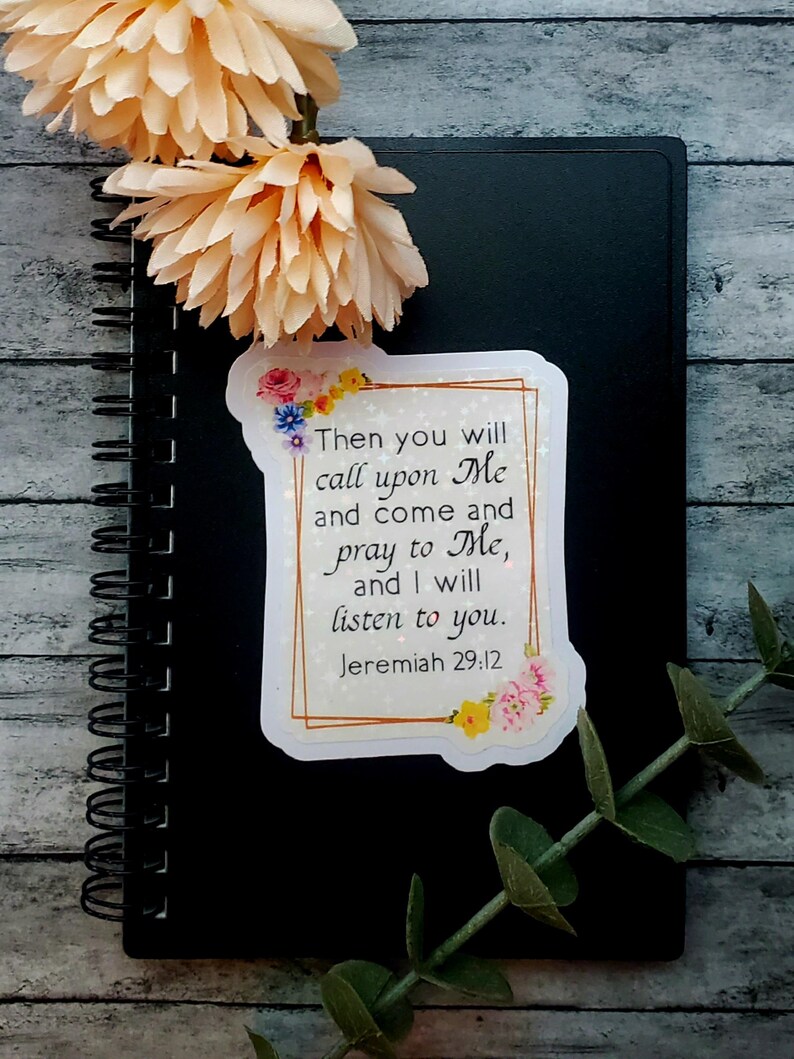 Then you will
call upon Me
and come and
pray to Me,
and I will
listen to you.
Jeremiah 29:12